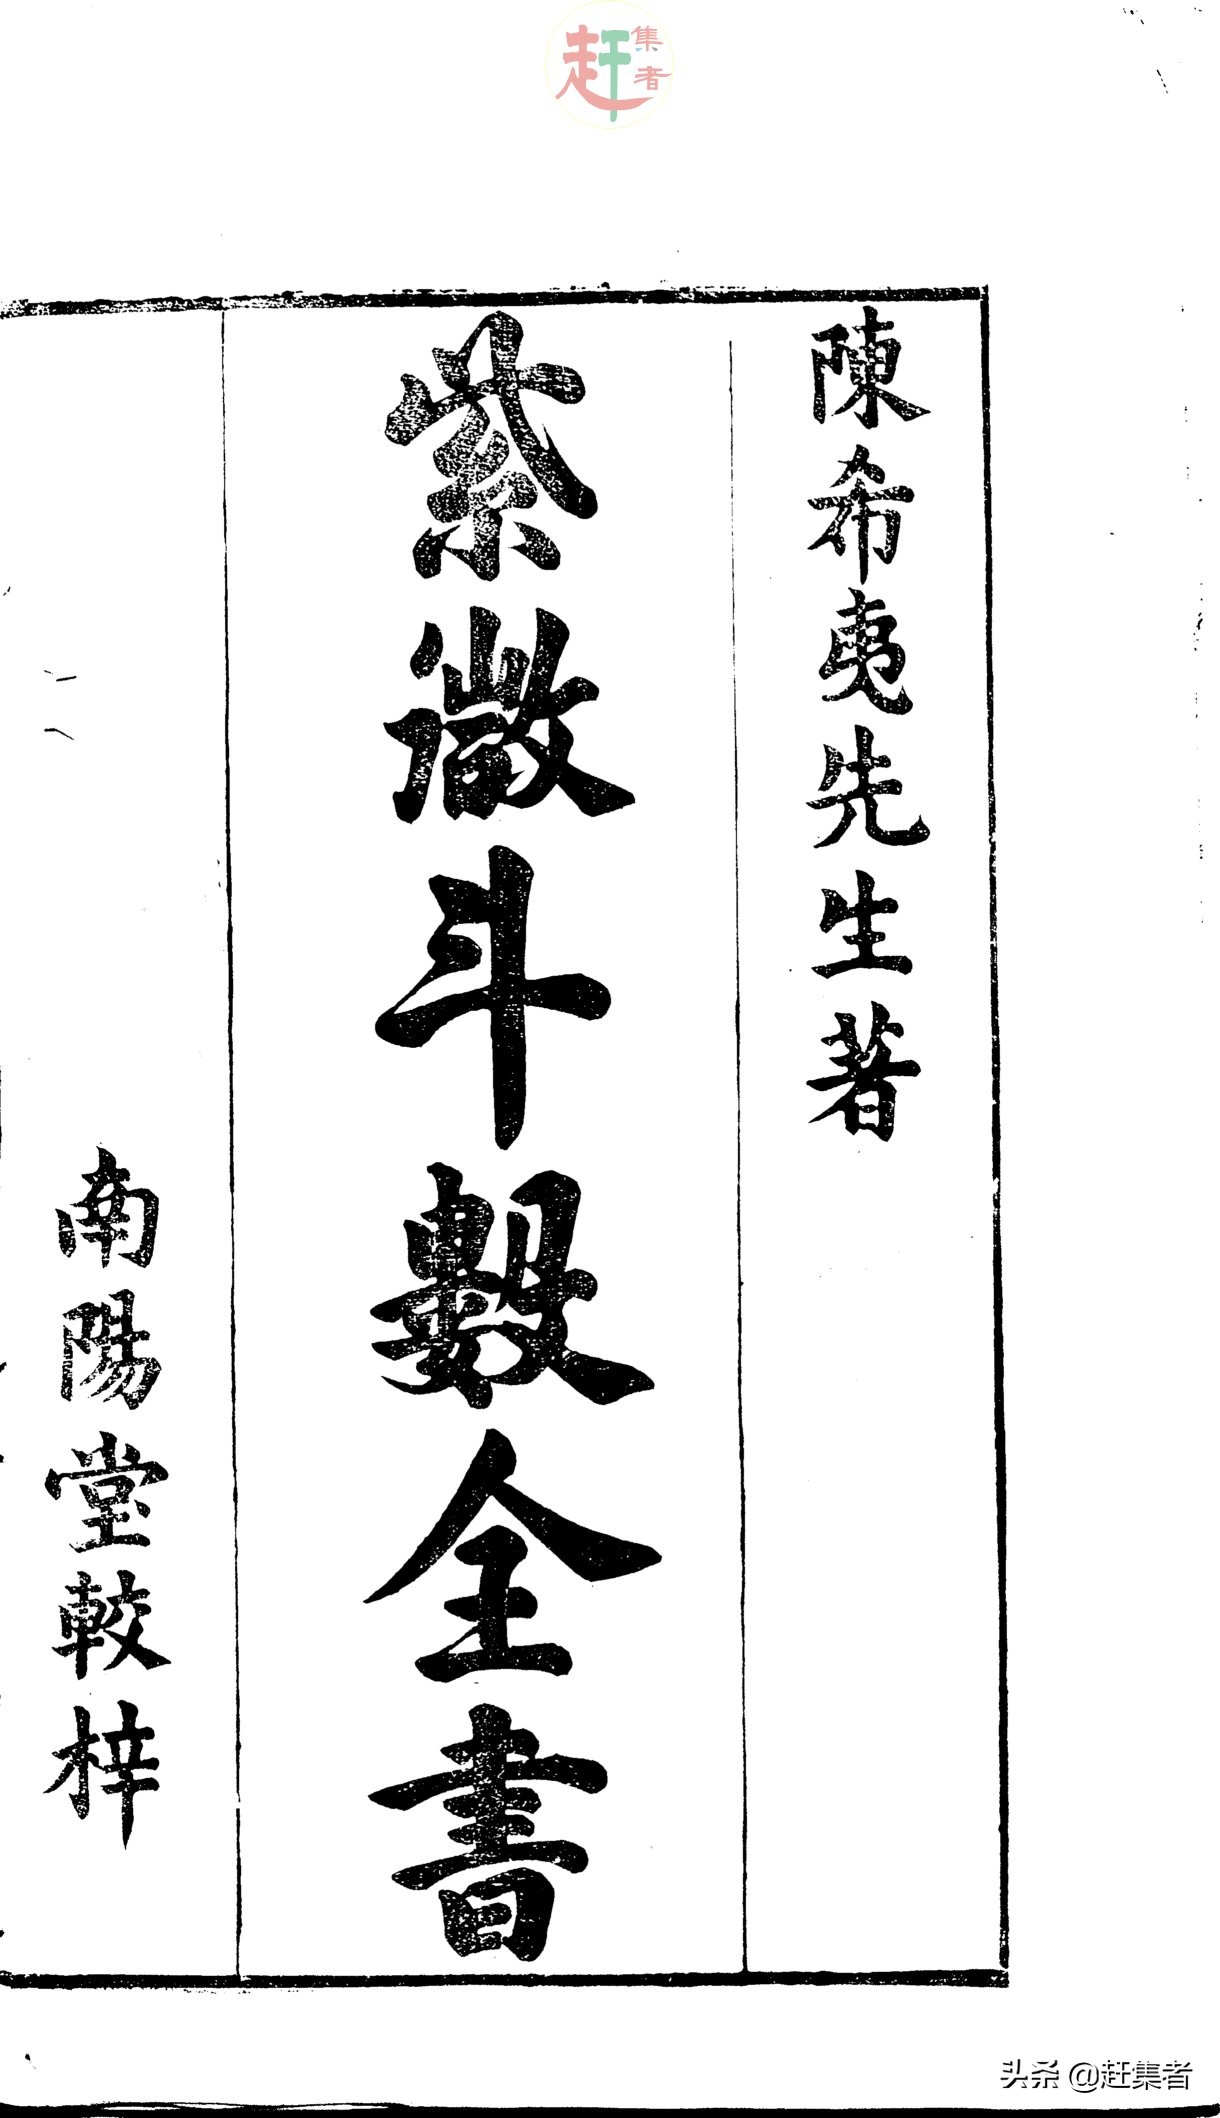 赶集者
陳希夷先生著
紫微斗數全書
南陽堂較梓
头条 @赶集者